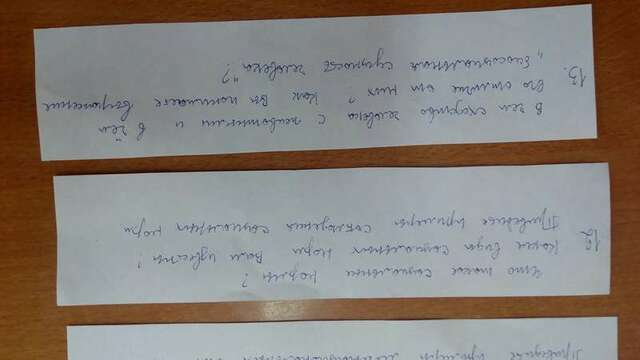 Приведите примеры
Что такое социальные нормы?
Какие виды социальных норм Вам известны?
12
Приведите примеры соблюдения социальных норм
В чём сходство человека с животными и в чём
его отличие от них? Как Вы понимаете выражение
13. „Биосоциальная сущность человека"?